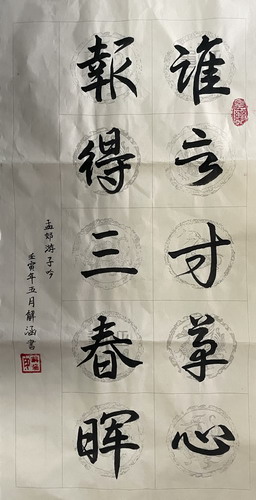 誰言寸草心
報得三春暉
孟郊游子吟
壬寅年五月解涵書